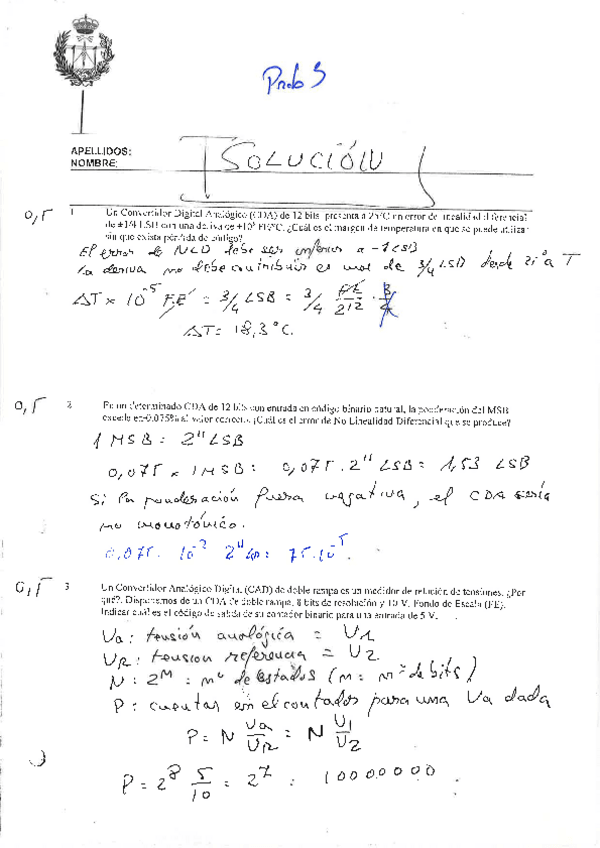 Prob 5
APELLIDOS:
NOMBRE:
SOLUCIÓN
0,5 1 Un Convertidor Digital Analógico (CDA) de 12 bits presenta a 25°C un error de linealidad diferencial
de ±1/4 LSB con una deriva de FE/°C. ¿Cuál es el margen de temperatura en que se puede utilizar
sin que exista pérdida de código?
El error de NLD debe ser inferior a -1 LSB
La deriva no debe contribuir es mas de 3/4 LSB desde 25° a T
ΔT × 10^-5 FE = 3/4 LSB = 3/4 FE/2^12
ΔT = 18,3°C.
0,5 2 En un determinado CDA de 12 bits con entrada en código binario natural, la ponderación del MSB
excede en 0.075% al valor correcto. ¿Cuál es el error de No Linealidad Diferencial que se produce?
1 MSB = 2^11 LSB
0,075 × 1 MSB = 0,075 · 2^11 LSB = 1,53 LSB
Si la ponderación fuera negativa, el CDA sería
no monotónico.
0,075 · 10^-2 2^11
0,5 3 Un Convertidor Analógico Digital (CAD) de doble rampa es un medidor de relación de tensiones. ¿Por
qué?. Disponemos de un CDA de doble rampa, 8 bits de resolución y 10 V. Fondo de Escala (FE).
Indicar cuál es el código de salida de su contador binario para una entrada de 5 V.
Va: tensión analógica = V1
VR: tension referencia = V2
N: 2^m: nº de estados (m: nº de bits)
P: cuentas en el contador para una Va dada
P = N Va/VR = N V1/V2
P = 2^8 5/10 = 2^7 : 10000000.